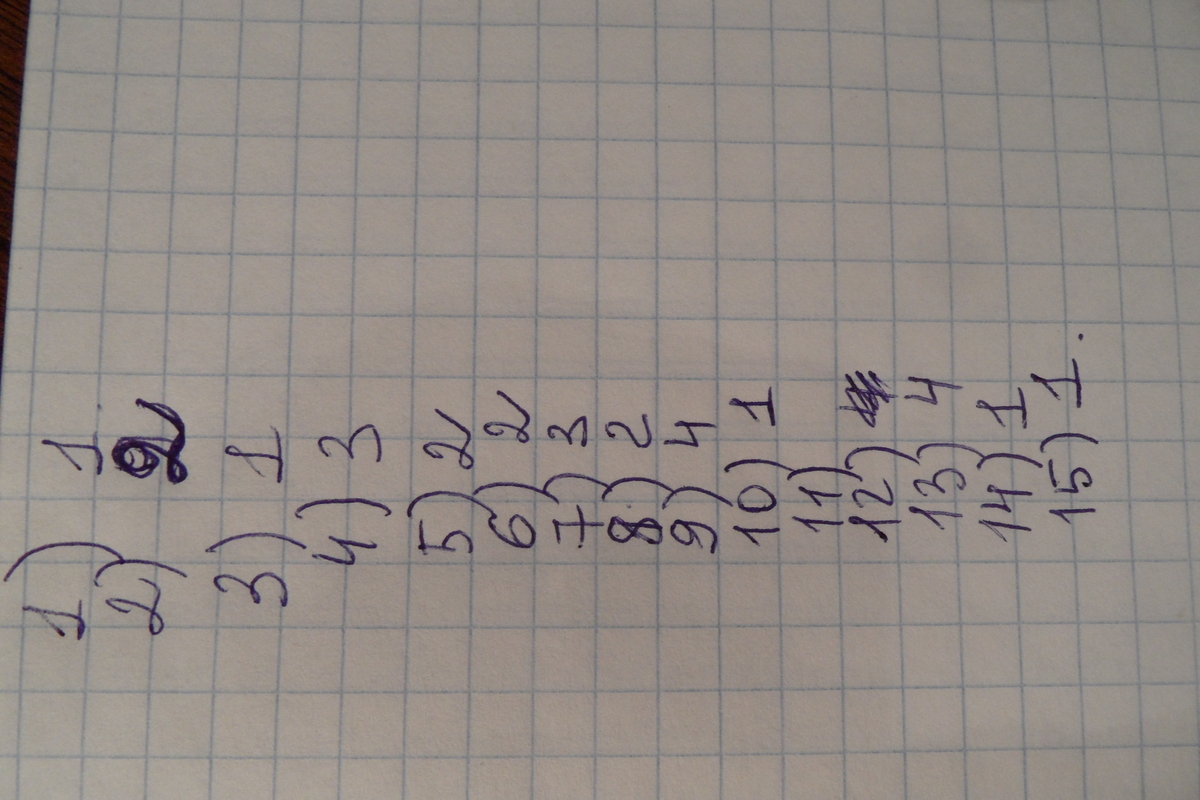 1) 1
2) 2
3) 1
4) 3
5) 2
6) 2
7) 3
8) 2
9) 4
10) 1
11)
12)
13) 4
14) 1
15) 1.